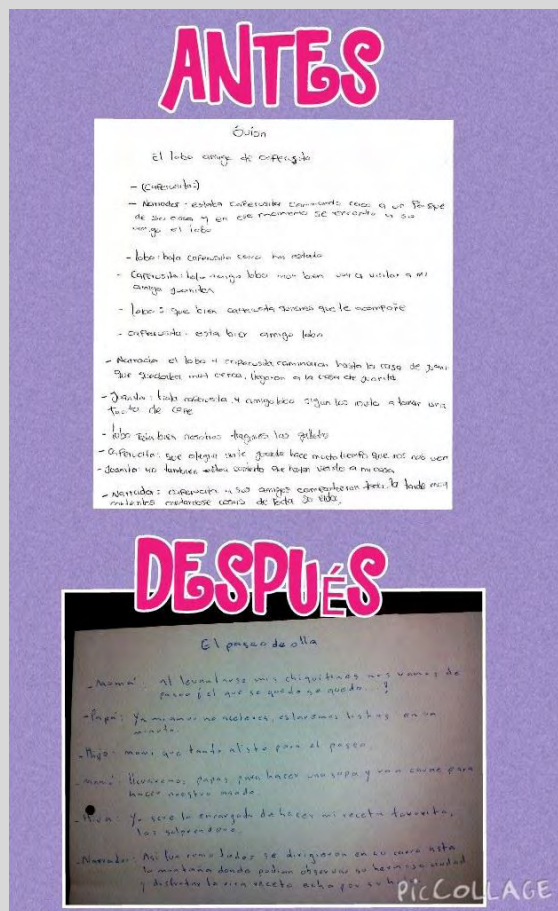 ANTES
Guion
El lobo amigo de caperusita
- (caperusita:)
- Narrador: estaba caperusita caminando cerca a un parque
de su casa y en ese momento se encontro a su
amigo el lobo
- lobo: hola caperusita como has estado
- caperusita: hola amigo lobo muy bien voy a visitar a mi
amiga juanita
- lobo: que bien caperusita quieres que te acompañe
- caperusita: esta bien amigo lobo
- Narrador el lobo y caperusita caminaron hasta la casa de
que quedaba muy cerca, llegaron a la casa de juanita
- Juanita: hola caperusita y amigo lobo sigan los invito a tomar una
de cafe
- lobo bien nosotros las galletas
- caperucita: que alegria hace mucho tiempo que no nos
- Juanita yo tambien estoy contenta que hayan venido a mi casa
- Narrador: caperucita y sus amigos compartieron toda la tarde muy
cosas de toda su vida.
DESPUÉS
El paseo de olla
- Mamá: Al levantarse mis chiquitines nos vamos de
paseo ¡el que se quedo se quedo...!
- Papá: Ya mi amor no aceleres, estaremos listos en un
minuto.
- Hijo: mami que tanto alisto para el paseo.
- Mamá: llevaremos, papas, para hacer una sopa y una carne para
hacer nuestro asado.
- Hija: Yo sere la encargada de hacer mi receta favorita,
los
- Narrador: Asi fue como todos se dirigieron en su carro asta
la montaña donde podian observar su hermosa ciudad
y disfrutar la rica receta echa por su
PicCOLLAGE